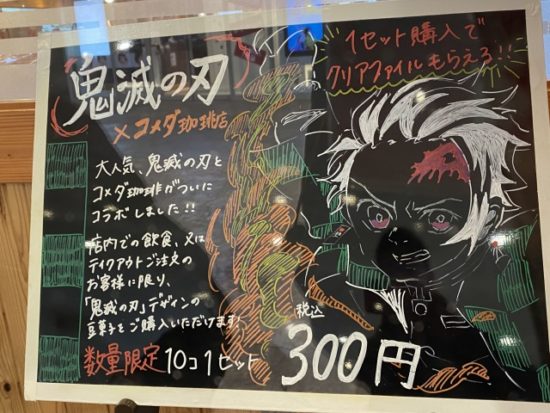 鬼滅の刃
×コメダ珈琲店
1セット購入で
クリアファイルもらえる!!
大人気、鬼滅の刃と
コメダ珈琲がついに
コラボしました!!
店内での飲食、又は
テイクアウトご注文の
お客様に限り、
「鬼滅の刃」デザインの
豆菓子をご購入いただけます!
数量限定 10コ1セット
税込
300円